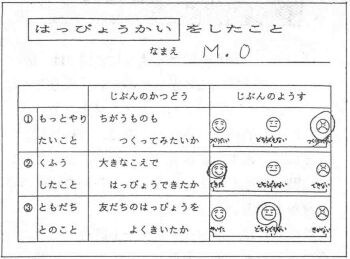 はっぴょうかい をしたこと
なまえ M.O
じぶんのかつどう じぶんのようす
① もっとやり ちがうものも
たいこと つくってみたいか
つくりたい どちらでもない
② くふう 大きなこえで
したこと はっぴょうできたか
できた どちらでもない できない
③ ともだち 友だちのはっぴょうを
とのこと よくきいたか
きいた どちらでもない きかない